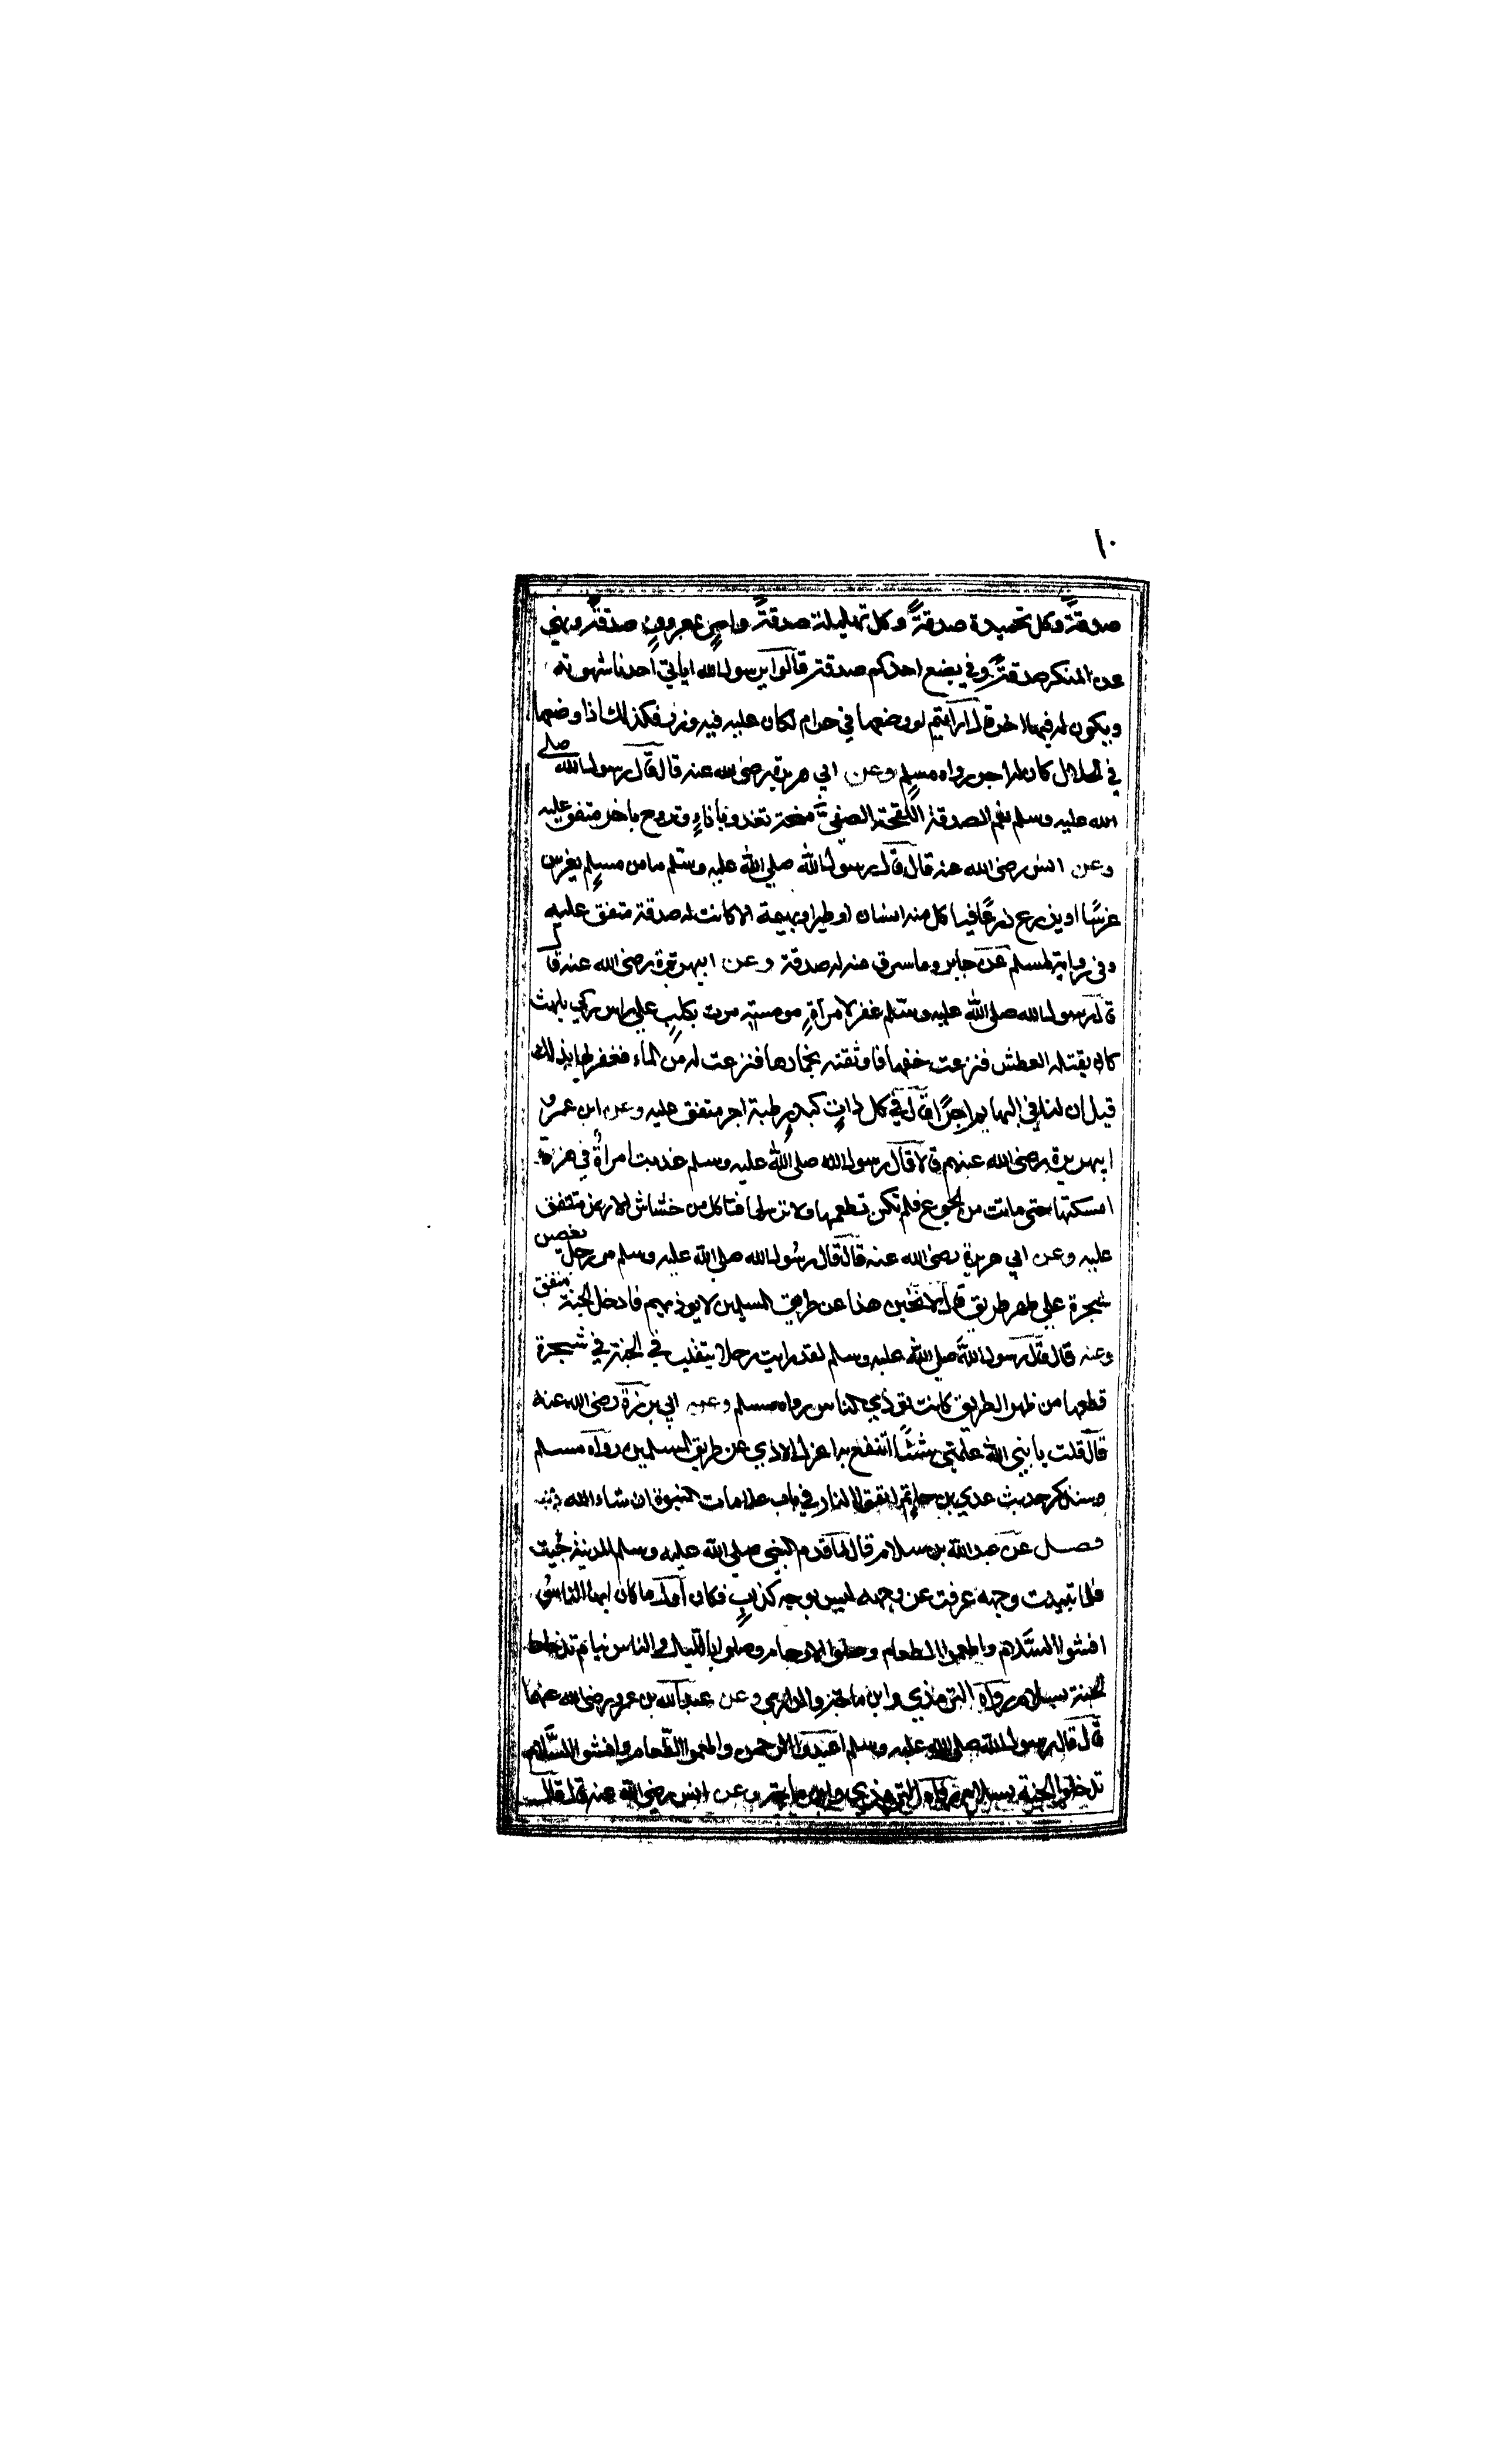 ١٠
صدقةً وكل تحميدة صدقةً وكل تهليلة صدقةً وامرٍ بمعروفٍ صدقةً ونهي
عن المنكر صدقةً وفي بضع احدكم صدقة قالوا يرسول الله اياتي احدنا شهوته
ويكون له فيها اجر قال ارايتم لو وضعها في حرام لكان عليه فيه وزر فكذلك اذا وضعها
في الحلال كان له اجر رواه مسلم وعن ابي هريرة رضي الله عنه قال قال رسول الله صلي
الله عليه وسلم نعم الصدقة اللقحة الصفيّ منحة تغدو باناءٍ وتروح باخر متفق عليه
وعن انس رضي الله عنه قال قال رسول الله صلي الله عليه وسلم ما من مسلمٍ يغرس
غرسًا او يزرع زرعًا فياكل منه انسان او طير او بهيمة الا كانت له صدقة متفق عليه
وفي رواية لمسلم عن جابر وما سرق منه له صدقة وعن ابيهريرة رضي الله عنه قال
قال رسول الله صلي الله عليه وسلم غفر لامرأةٍ مومسةٍ مرت بكلبٍ علي راس ركي يلهث
كاد يقتله العطش فنزعت خفها فاوثقته بخمارها فنزعت له من الماء فغفر لها بذلك
قيل ان لنا في البهايم اجرًا قال في كل ذات كبدٍ رطبة اجر متفق عليه وعن ابن عمر و
ابيهريرة رضي الله عنهم قالا قال رسول الله صلي الله عليه وسلم عذبت امرأة في هرة
امسكتها حتى ماتت من الجوع فلم تكن تطعمها ولا ترسلها فتاكل من خشاش الارض متفق
عليه وعن ابي هريرة رضي الله عنه قال قال رسول الله صلي الله عليه وسلم مر رجل بغصن
شجرة علي ظهر طريق فقال لانحين هذا عن طريق المسلمين لا يوذيهم فادخل الجنة متفق
وعنه قال قال رسول الله صلي الله عليه وسلم لقد رايت رجلا يتقلب في الجنة في شجرة
قطعها من ظهر الطريق كانت تؤذي الناس رواه مسلم وعن ابي برزة رضي الله عنه
قال قلت يا نبي الله علمني شئًا انتفع به اعزل الاذي عن طريق المسلمين رواه مسلم
وسنذكر حديث عدي بن حاتم اتقوا النار في باب علامات النبوة ان شاء الله
فصل عن عبد الله بن سلام قال لما قدم النبي صلي الله عليه وسلم المدينة جيت
فلما تبينت وجهه عرفت عن وجهه ليس بوجه كذابٍ فكان اول ما كان ايها الناس
افشوا السّلام واطعموا الطعام وصلوا الارحام وصلوا بالليل والناس نيام تدخلوا
الجنة بسلام رواه الترمذي وابن ماجة والدارمي وعن عبد الله بن عمرو رضي الله عنهما
قال قال رسول الله صلي الله عليه وسلم اعبدوا الرحمن واطعموا الطّعام وافشوا السّلام
تدخلوا الجنة بسلام رواه الترمذي وابن ماجة وعن انس رضي الله عنه قال قال